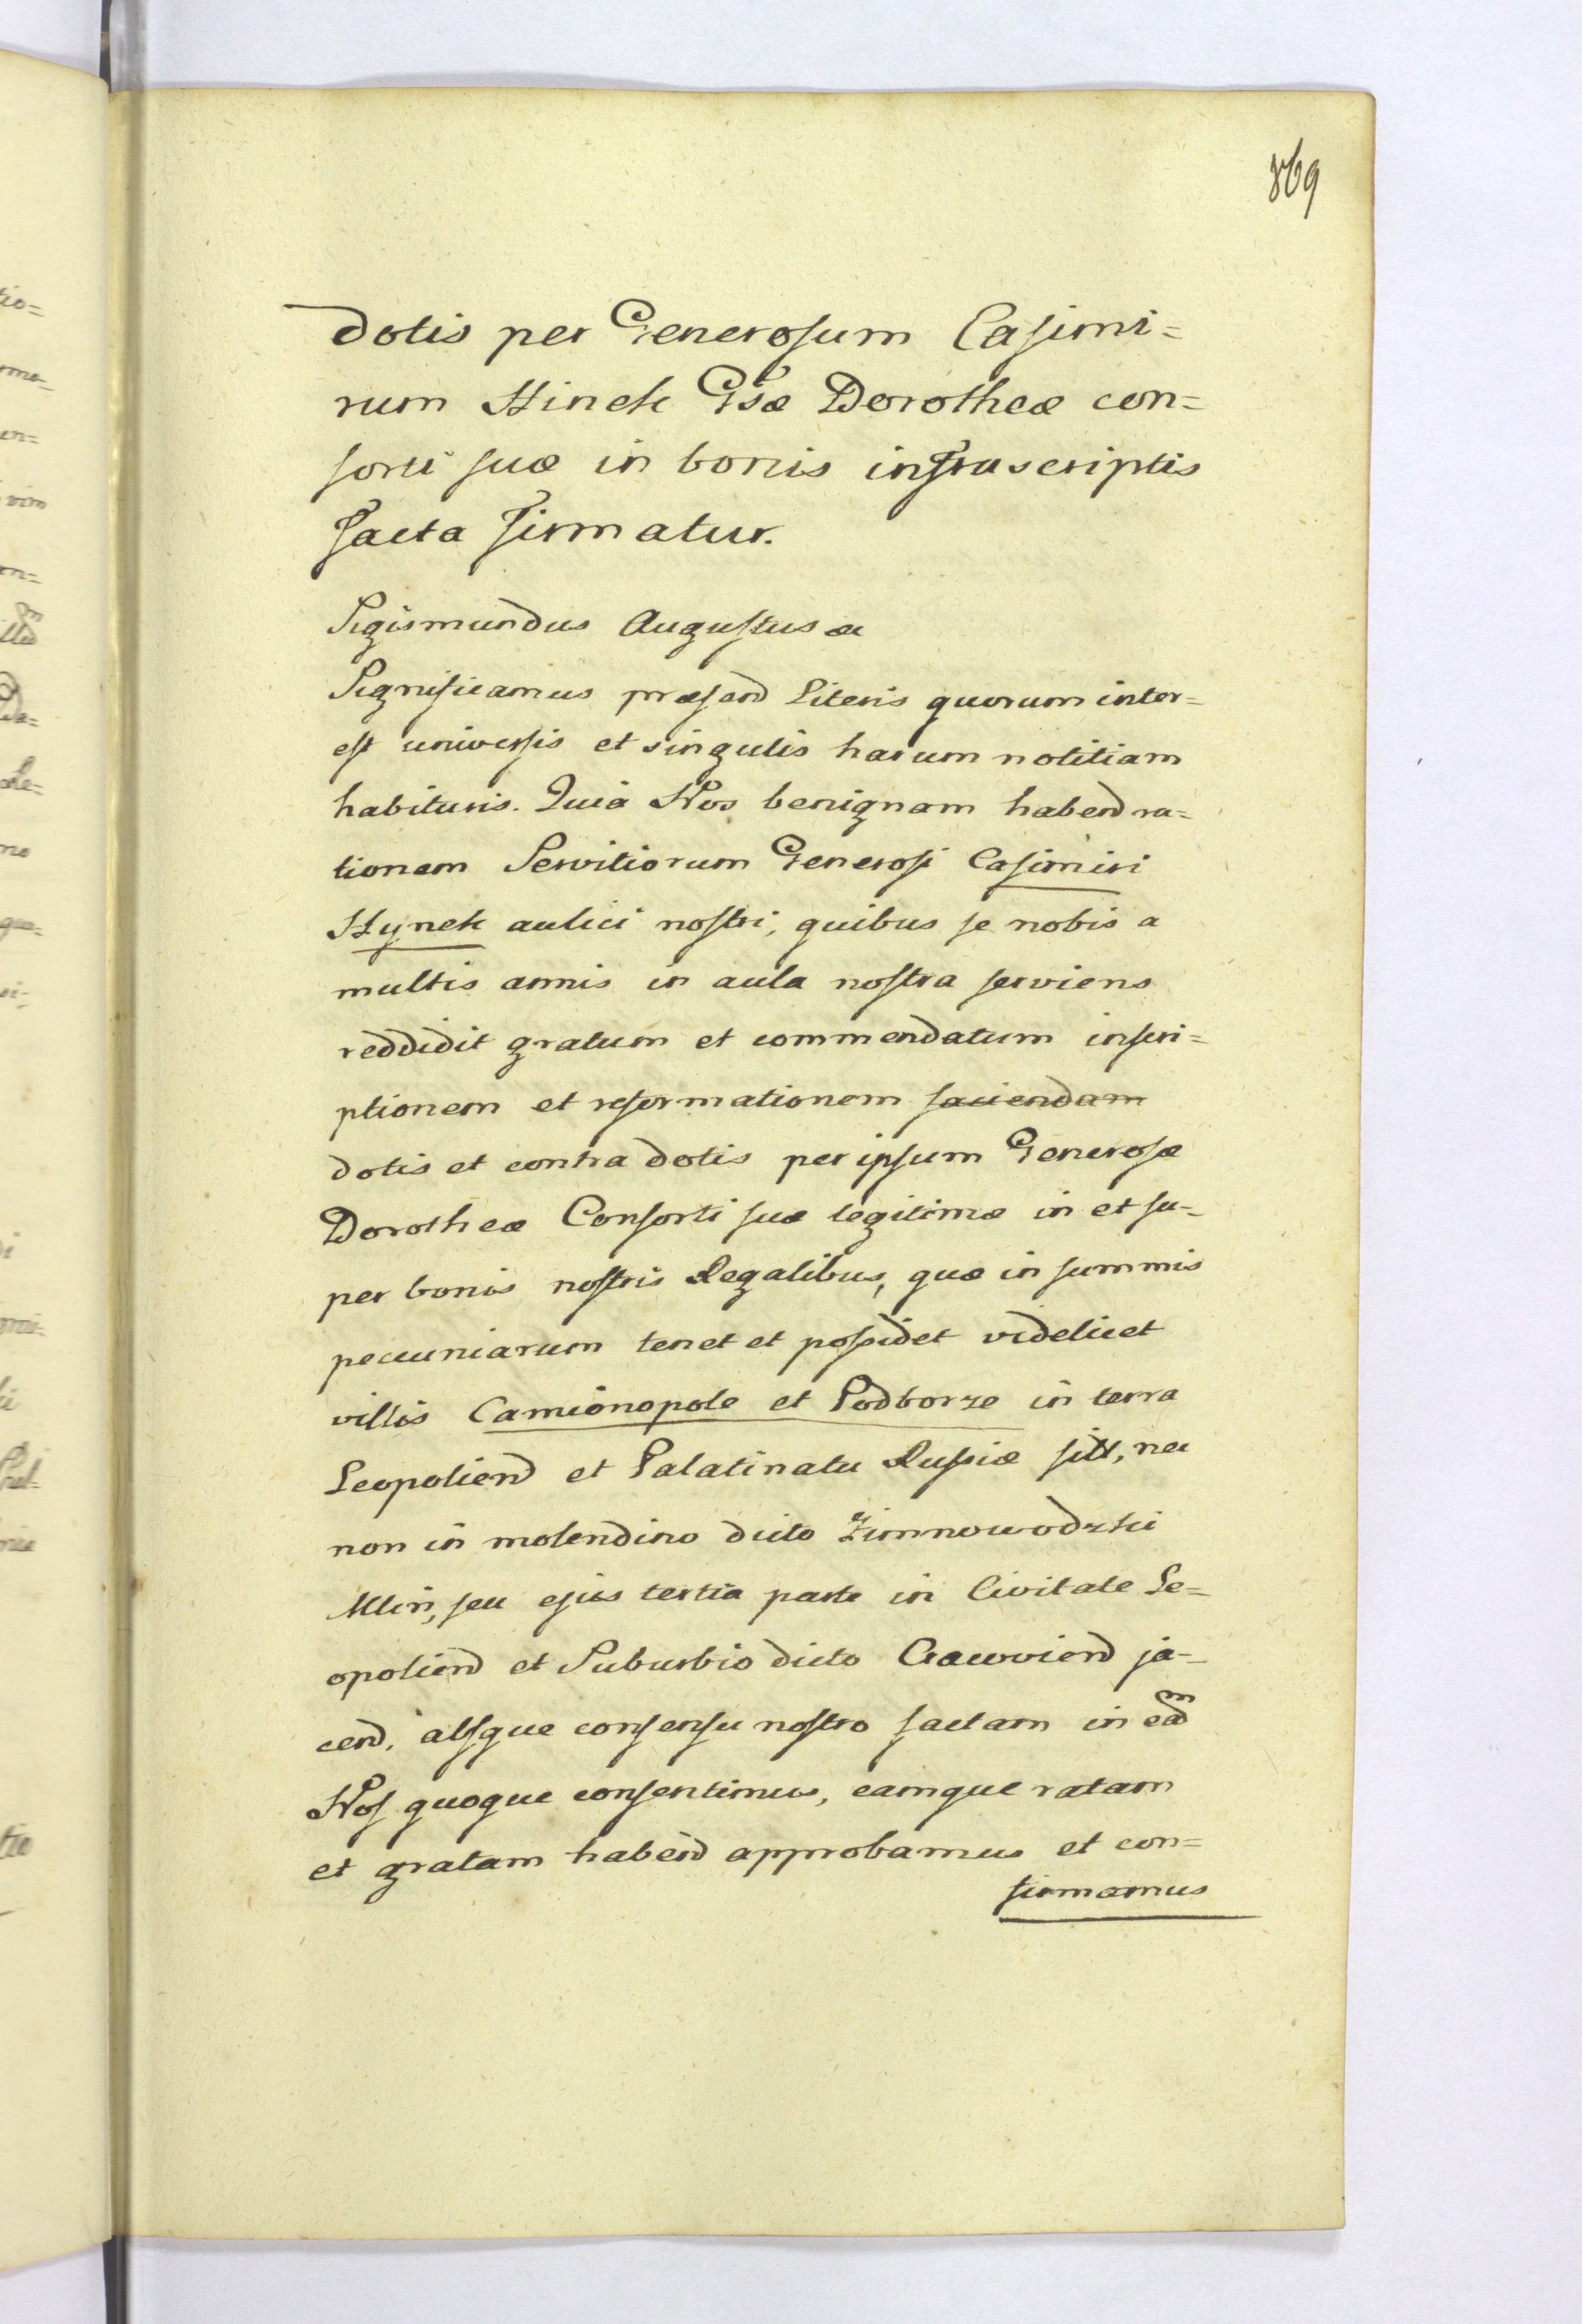 869
dotis per Generosum Casimi=
rum Hinek Gsæ Dorotheæ con=
sorti suæ in bonis infrascriptis
facta firmatur.
Sigismundus Augustus &c
Significamus præsend Literis quorum inter=
est universis et singulis harum notitiam
habituris. Quia Nos benignam habend ra=
tionem Servitiorum Generosi Casimiri
Hynek aulici nostri, quibus se nobis a
multis annis in aula nostra serviens
reddidit gratum et commendatum inscri=
ptionem et reformationem faciendam
dotis et contra dotis per ipsum Generosæ
Dorotheæ Consorti suæ legitimæ in et su=
per bonis nostris Regalibus, quæ in summis
pecuniarum tenet et possidet videlicet
villis Camionopole et Podborze in terra
Leopoliend et Palatinatu Russiæ sitt, nec
non in molendino dicto Zimnowodzki
Mlin, seu ejus tertia parte in Civitate Le=
opoliend et Suburbio dicto Cracoviend ja=
cend. absque consensu nostro factam in eadm
Nos quoque consentimus, eamque ratam
et gratam habend approbamus et con=
firmamus